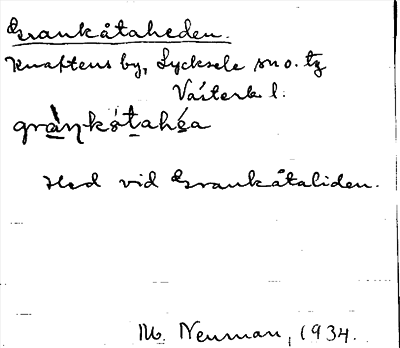 Grankåtaheden.
Knaftens by, Lycksele sn o. tg
Västerb l.
grànkåtahéa
Hed vid Grankåtaliden.
M. Neuman, 1934.